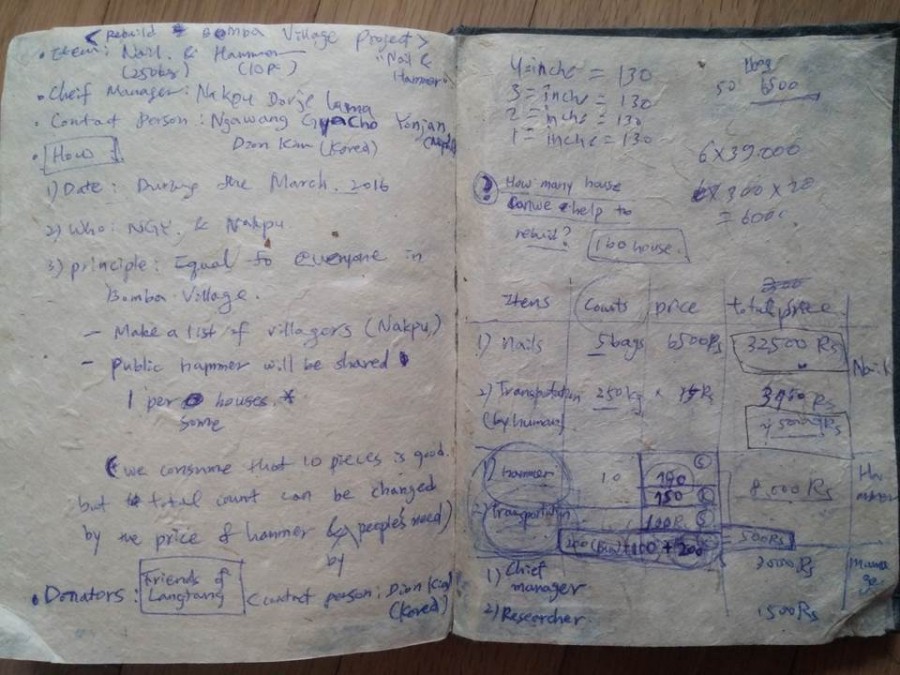 < Rebuild Bomba Village Project >
• Item: Nail & Hammer "Nail &
(250kg) (10Pc) Hammer"
• Cheif Manager: Nakpu Dorje Lama
• Contact Person: Ngawang Gyacho Yonjan
Dion Kim (Korea)
• How
1) Date: During the March. 2016
2) Who: NGY. & Nakpu
3) principle: Equal to everyone in
Bomba Village.
- Make a list of villagers (Nakpu)
- public hammer will be shared
1 per houses. *
some
(we consume that 10 pieces is good.
but total count can be changed
by the price of hammer & people's need)
by
• Donators: Friends of
Langtang < contact person: Dion Kim
(Korea)
4=inche = 130
3=inche = 130
2=inche = 130
1=inche = 130
1bag
50 6500
6x39.000
6x300x20
= 600
? How many house
can we help to
rebuild?
100 house.
Itens Counts price total price
1) Nails 5bags 6500Rs 32500 Rs
Nail
2) Transportation 250kg × 15Rs 3950 Rs
(by human)
1) hammer 10 190 S
150 L
8.000 Rs
2) Transportation 100Rs S
+ 200 500Rs
1) Chief
manager 3000Rs
2) Researcher 1500Rs